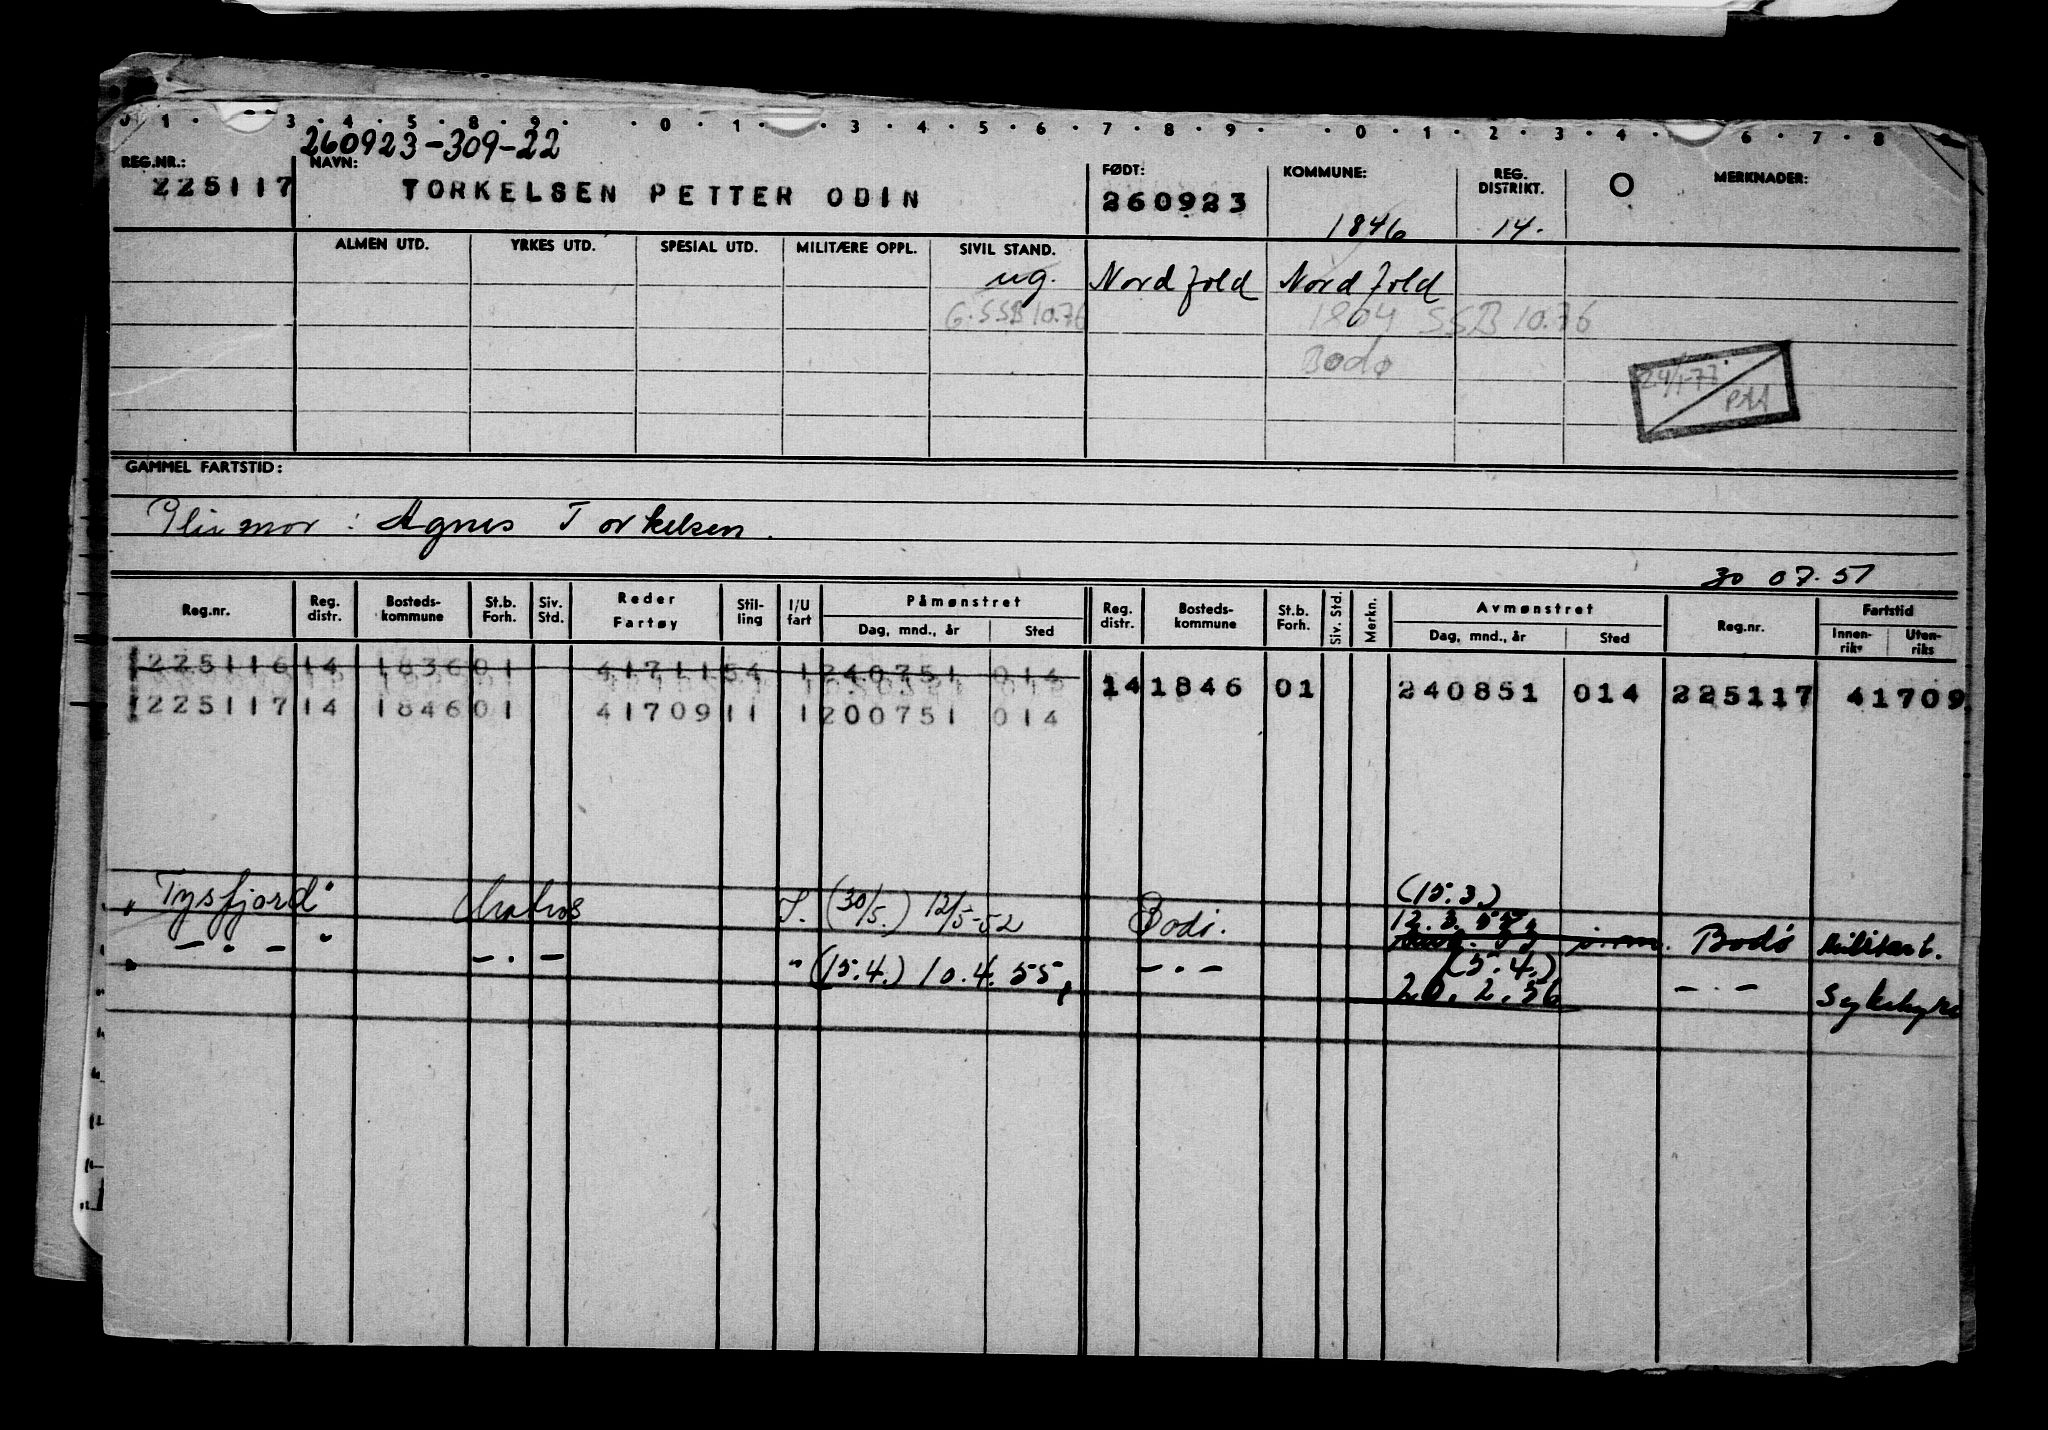 1 . 3 . 4 . 5 . 8 . 9 . . 0 . 1 . . 3 . 4 . 5 . 6 . 7 . 8 . 9 . . 0 . 1 . 2 . 3 . 4 . 6 . 7 . 8
260923-309-22
REG.NR.: NAVN: FØDT: KOMMUNE: REG. DISTRIKT. O MERKNADER:
225117 TORKELSEN PETTER ODIN 260923 1846 14.
ALMEN UTD. YRKES UTD. SPESIAL UTD. MILITÆRE OPPL. SIVIL STAND.
ug. Nordfold Nordfold
G. SSB 10.76 1804 SSB 10.76
Bodø
24/1-77.
GAMMEL FARTSTID:
mor : Agnes Torkelsen.
30 07. 51
Reg.nr. Reg. distr. Bosteds- kommune St.b. Forh. Siv. Std. Reder Fartøy Stil- ling I/U fart Påmønstret Reg. distr. Bosteds- kommune St.b. Forh. Siv. Std. Merkn. Avmønstret Reg.nr. Fartstid
Dag, mnd., år Sted Dag, mnd., år Sted Innen- riks Uten- riks
225116 14 1836 01 41711 54 1 240751 014
14 1846 01 240851 014 225117 41709
225117 14 1846 01 41709 11 1 200751 014
(15.3)
"Tysfjord" Matros I. (30/5.) 12/5-52 Bodø. 12.3.55 Bodø Militært.
— . — " — . — " (15.4.) 10.4.55, — . — (5.4.) 20.2.56 — . — Sykehyre